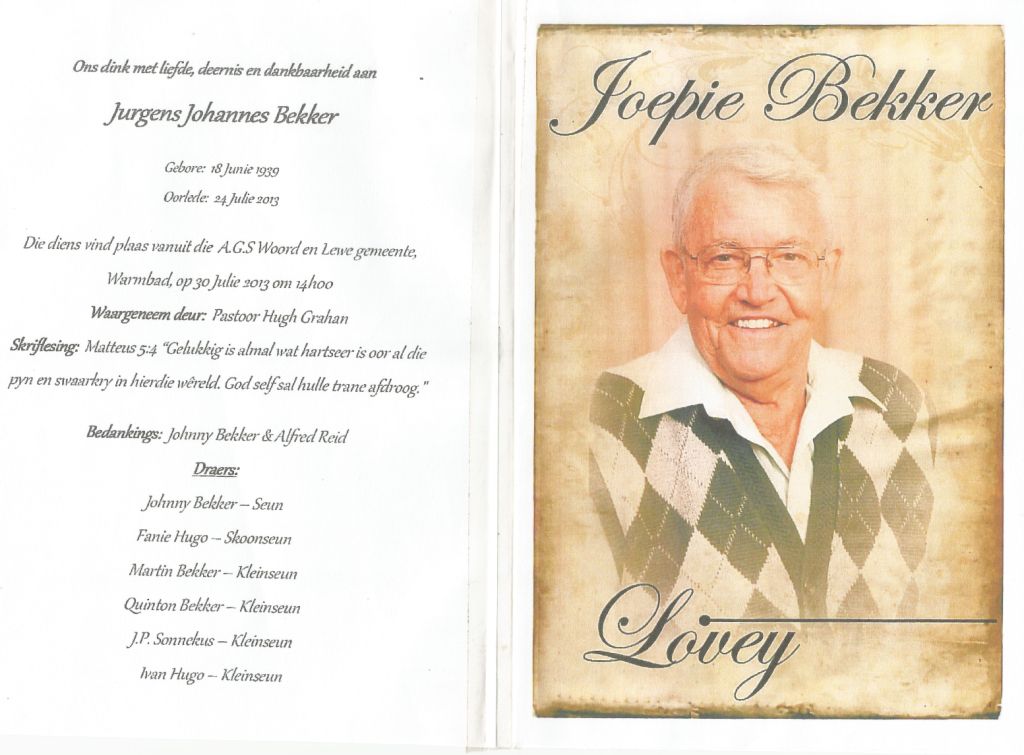 Ons dink met liefde, deernis en dankbaarheid aan
Jurgens Johannes Bekker
Gebore: 18 Junie 1939
Oorlede: 24 Julie 2013
Die diens vind plaas vanuit die A.G.S Woord en Lewe gemeente,
Warmbad, op 30 Julie 2013 om 14h00
Waargeneem deur: Pastoor Hugh Grahan
Skriflesing: Matteus 5:4 "Gelukkig is almal wat hartseer is oor al die
pyn en swaarkry in hierdie wêreld. God self sal hulle trane afdroog."
Bedankings: Johnny Bekker & Alfred Reid
Draers:
Johnny Bekker – Seun
Fanie Hugo – Skoonseun
Martin Bekker – Kleinseun
Quinton Bekker – Kleinseun
J.P. Sonnekus – Kleinseun
Ivan Hugo – Kleinseun
Joepie Bekker
Lovey